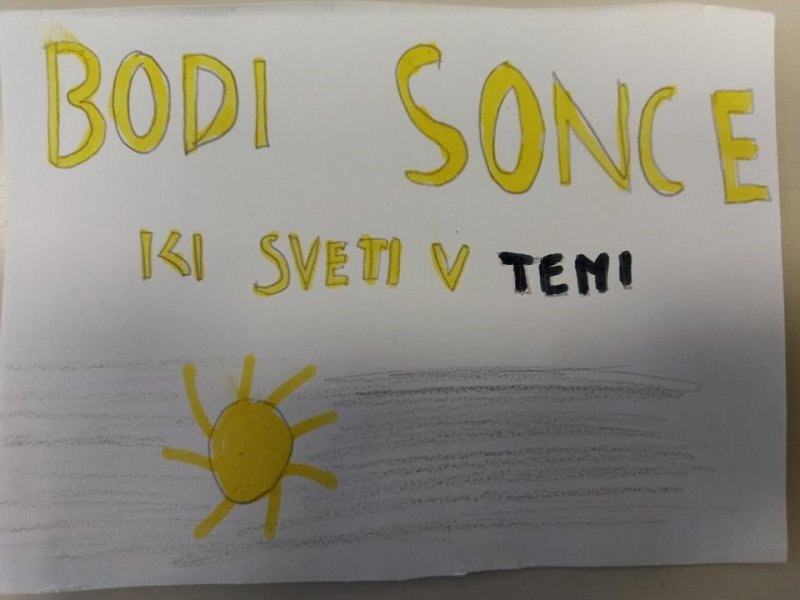 BODI SONCE
KI SVETI V TEMI